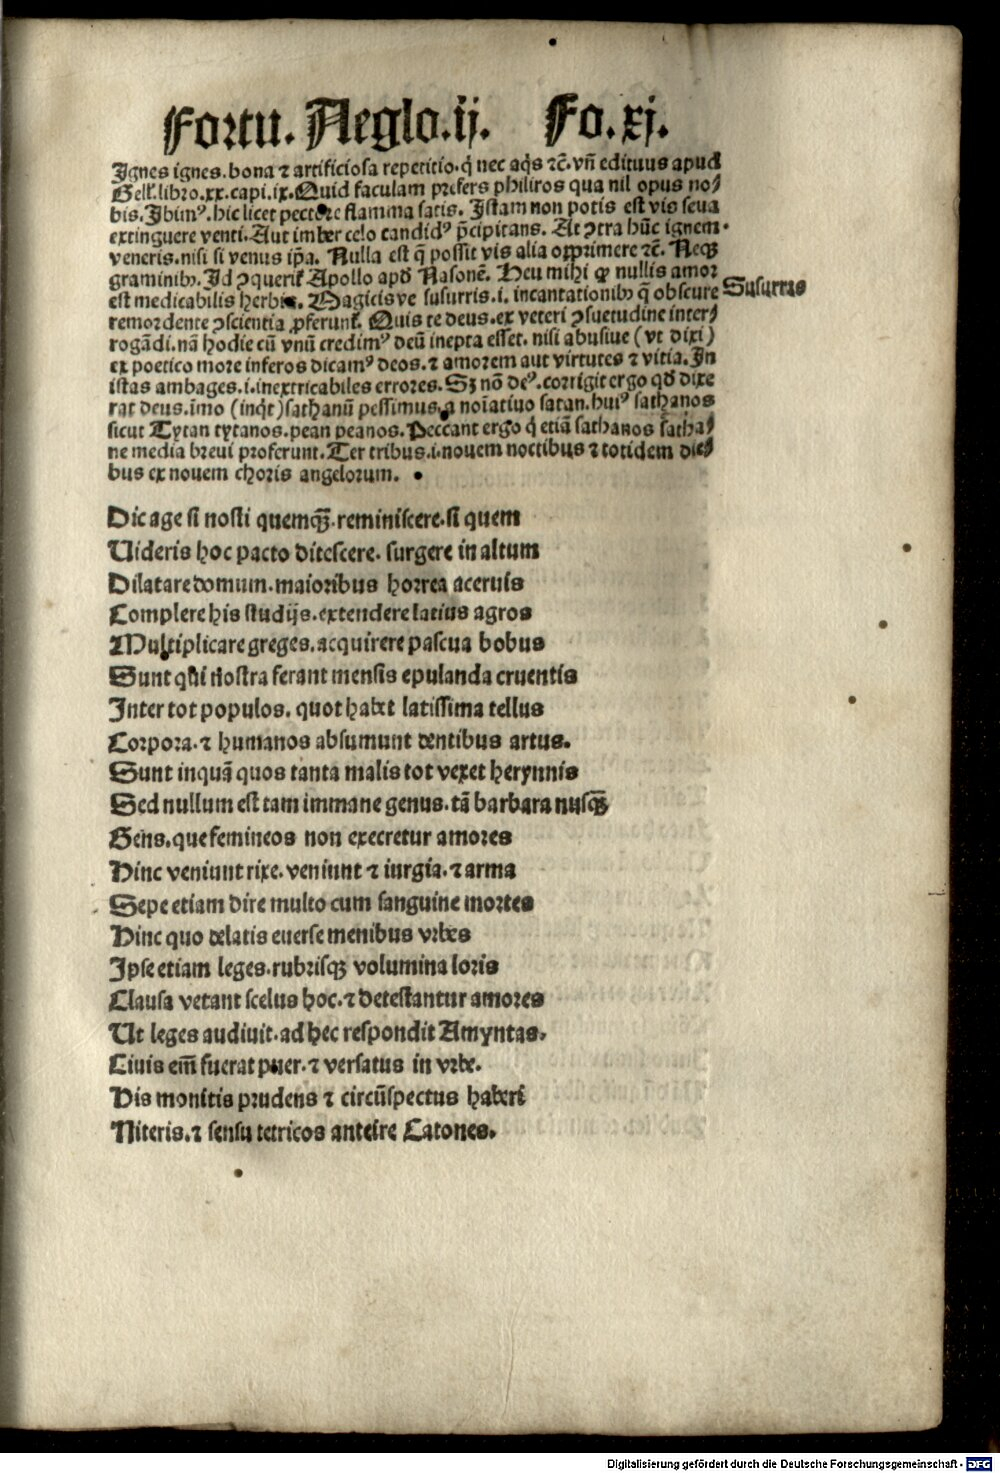 Fortu. Aeglo.ij. Fo.xj.
Ignes ignes. bona ⁊ artificiosa repetitio. q̃ nec aq̃s ⁊c̃. vñ edituus apud
Gell'. libro. xx. capi. ix. Quid faculam prefers philiros qua nil opus no/
bis. Ibimꝰ. hic licet pectore flamma satis. Istam non potis est vis seua
extinguere venti. Aut imber celo candidꝰ p̃cipitans. At ꝯtra hũc ignem.
veneris. nisi si venus ip̃a. Nulla est q̃ possit vis alia opprimere ⁊c̃. Neqꝫ
graminibꝰ. Id ꝯqueriť Apollo apð Nasonẽ. Heu mihi ꝙ nullis amor
est medicabilis herbis. Magicisve susurris. i. incantationibꝰ q̃ obscure
Susurrus
remordente ꝯscientia ꝓferunť. Quis te deus. ex veteri ꝯsuetudine inter/
rogãdi. nã hodie cũ vnũ credimꝰ deũ inepta esset. nisi abusiue (vt dixi)
ex poetico more inferos dicamꝰ deos. ⁊ amorem aut virtutes ⁊ vitia. In
istas ambages. i. inextricabiles errores. Sꝫ nõ deꝰ. corrigit ergo qð dixe
rat deus. imo (inqt) sathanũ pessimus, a noiatiuo satan. huiꝰ sathanos
sicut Tytan tytanos. pean peanos. Peccant ergo q̃ etiã sathanos satha/
ne media breui proferunt. Ter tribus. i. nouem noctibus ⁊ totidem die/
bus ex nouem choris angelorum.
Dic age si nosti quemqꝫ. reminiscere. si quem
Videris hoc pacto ditescere. surgere in altum
Dilatare domum. maioribus horrea aceruis
Complere his studijs. extendere latius agros
Multiplicare greges. acquirere pascua bobus
Sunt qui nostra ferant mensis epulanda cruentis
Inter tot populos. quot habet latissima tellus
Corpora. ⁊ humanos absumunt dentibus artus.
Sunt inquã quos tanta malis tot vexet herynnis
Sed nullum est tam immane genus. tã barbara nusqꝫ
Gens. que femineos non execretur amores
Hinc veniunt rixe. veniunt ⁊ iurgia. ⁊ arma
Sepe etiam dire multo cum sanguine mortes
Hinc quo delatis euerse menibus vrbes
Ipse etiam leges. rubrisqꝫ volumina loris
Clausa vetant scelus hoc. ⁊ detestantur amores
Ut leges audiuit. ad hec respondit Amyntas.
Ciuis em̃ fuerat puer. ⁊ versatus in vrbe.
His monitis prudens ⁊ circũspectus haberi
Niteris. ⁊ sensu tetricos anteire Catones.
Digitalisierung gefördert durch die Deutsche Forschungsgemeinschaft - DFG